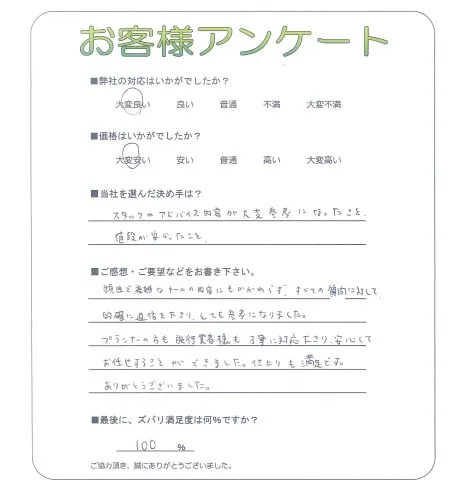 お客様アンケート
■弊社の対応はいかがでしたか？
大変良い 良い 普通 不満 大変不満
■価格はいかがでしたか？
大変安い 安い 普通 高い 大変高い
■当社を選んだ決め手は？
スタッフのアドバイス内容が大変参考になったこと、
値段が安かったこと
■ご感想・ご要望などをお書き下さい。
なメールの内容にもかかわらず、すべての質問に対して、
的確に返信を下さり、とても参考になりました。
プランナーの方も施行業者様も丁寧に対応下さり、安心して
お任せすることができました。仕上りも満足です。
ありがとうございました。
■最後に、ズバリ満足度は何％ですか？
100 ％
ご協力頂き、誠にありがとうございました。